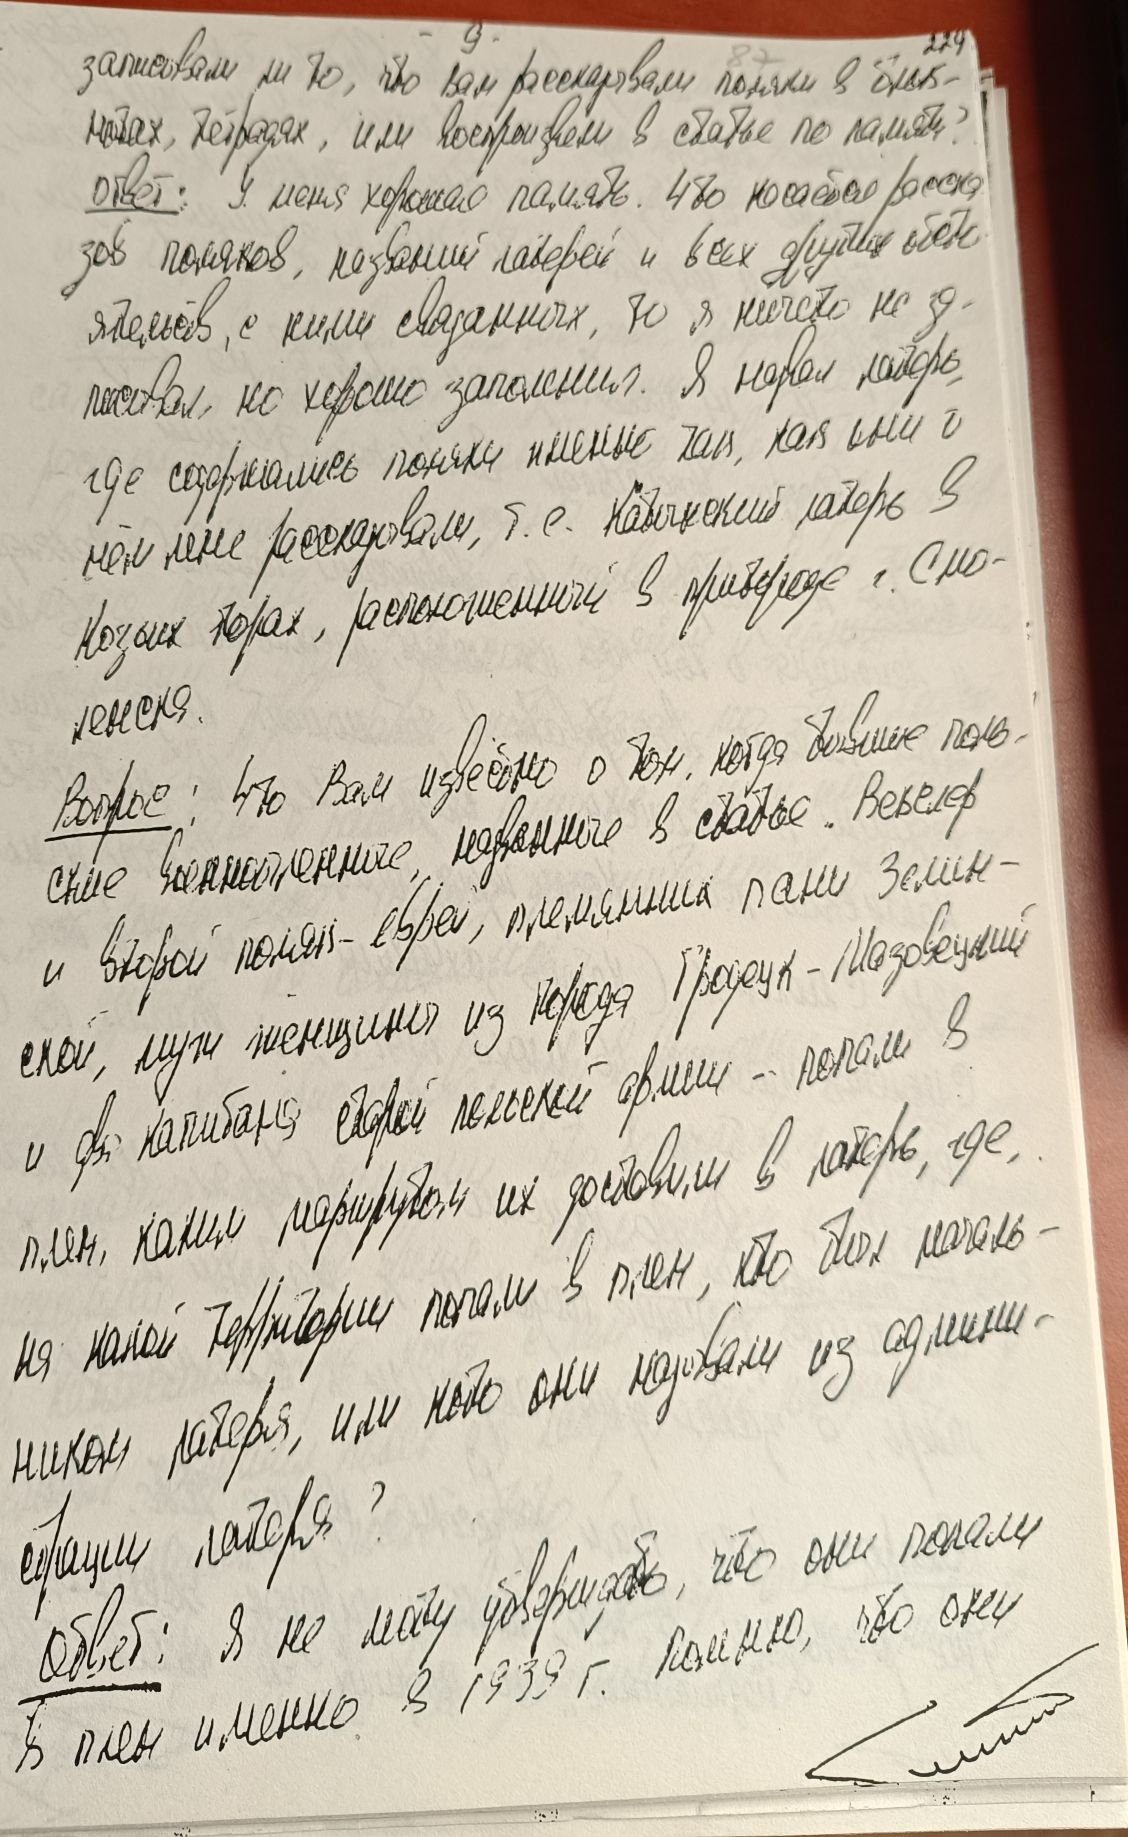 - 9 -
224
записывали ли то, что вам рассказывали поляки в блок-
нотах, тетрадях, или воспроизвели в статье по памяти?
Ответ: У меня хорошая память. Что касается расска
зов поляков, названий лагерей и всех других обсто-
ятельств, с ними связанных, то я ничего не за-
писывал, но хорошо запомнил. Я назвал лагерь,
где содержались поляки именно так, как они о
нём мне рассказывали, т.е. Катынский лагерь в
Козьих горах, расположенный в пригороде г. Смо-
ленска.
Вопрос: Что Вам известно о том, когда бывшие поль-
ские военнопленные, названные в статье. Векслер
и второй поляк-еврей, племянник пани Зелин-
ской, муж женщины из города Гродецк-Мазовецкий
и два капитана старой польской армии - попали в
плен, каким маршрутом их доставили в лагерь, где,
на какой территории попали в плен, кто был началь-
ником лагеря, или кого они называли из админи-
страции лагеря?
Ответ: Я не могу утверждать, что они попали
в плен именно в 1939 г. Помню, что они